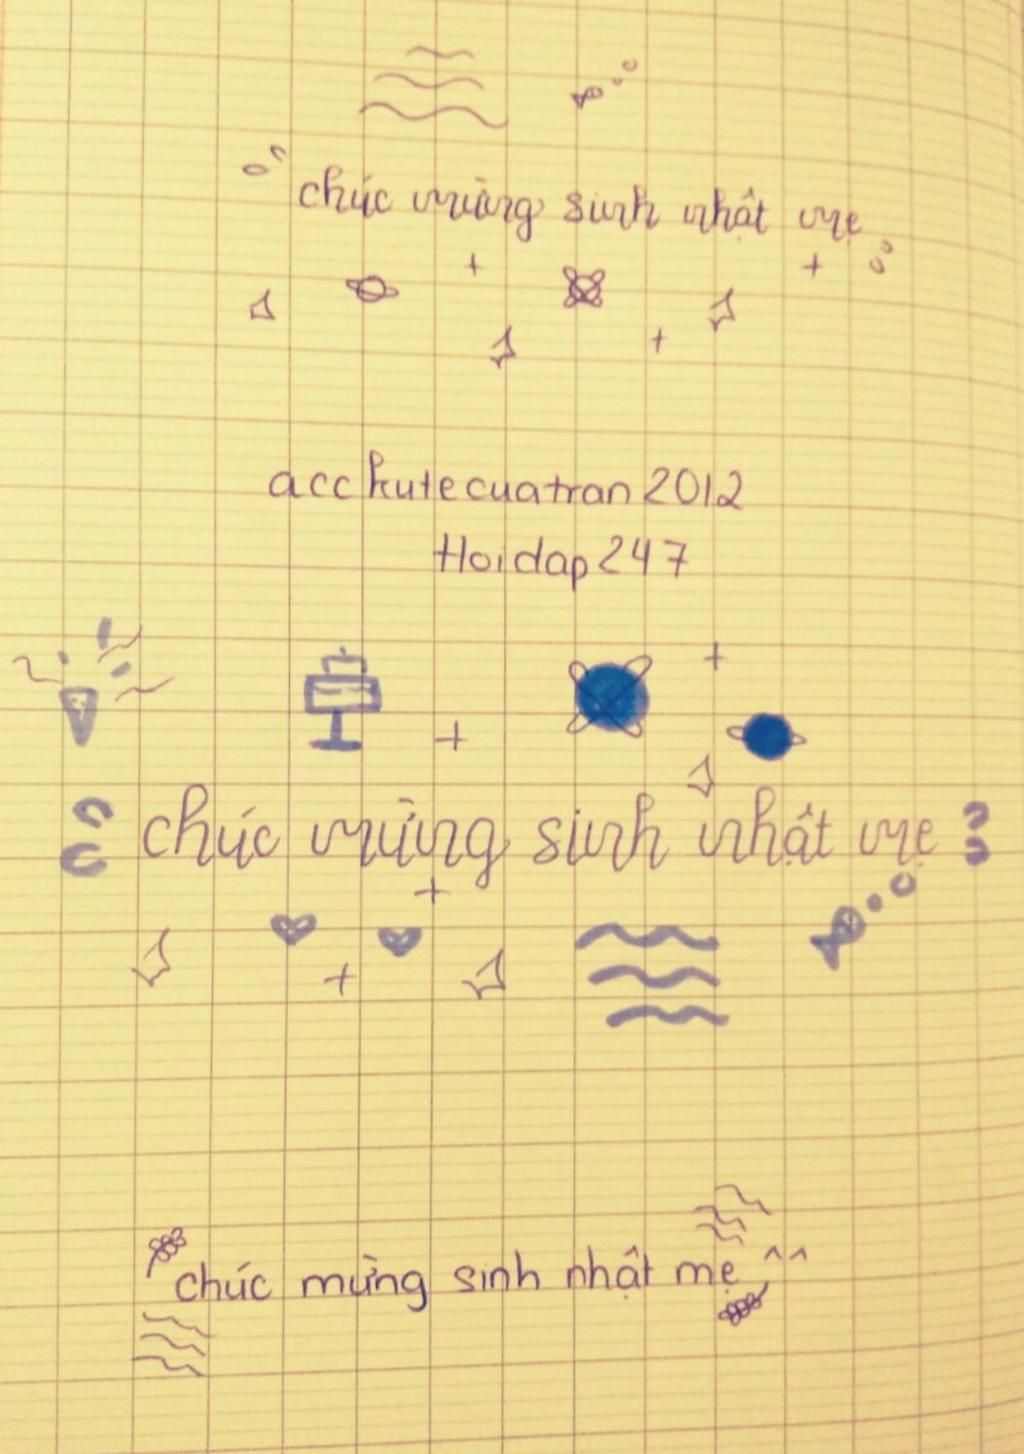 chúc mừng sinh nhật mẹ
acc kutecuatran2012
Hoidap247
chúc mừng sinh nhật mẹ
chúc mừng sinh nhật mẹ ^^